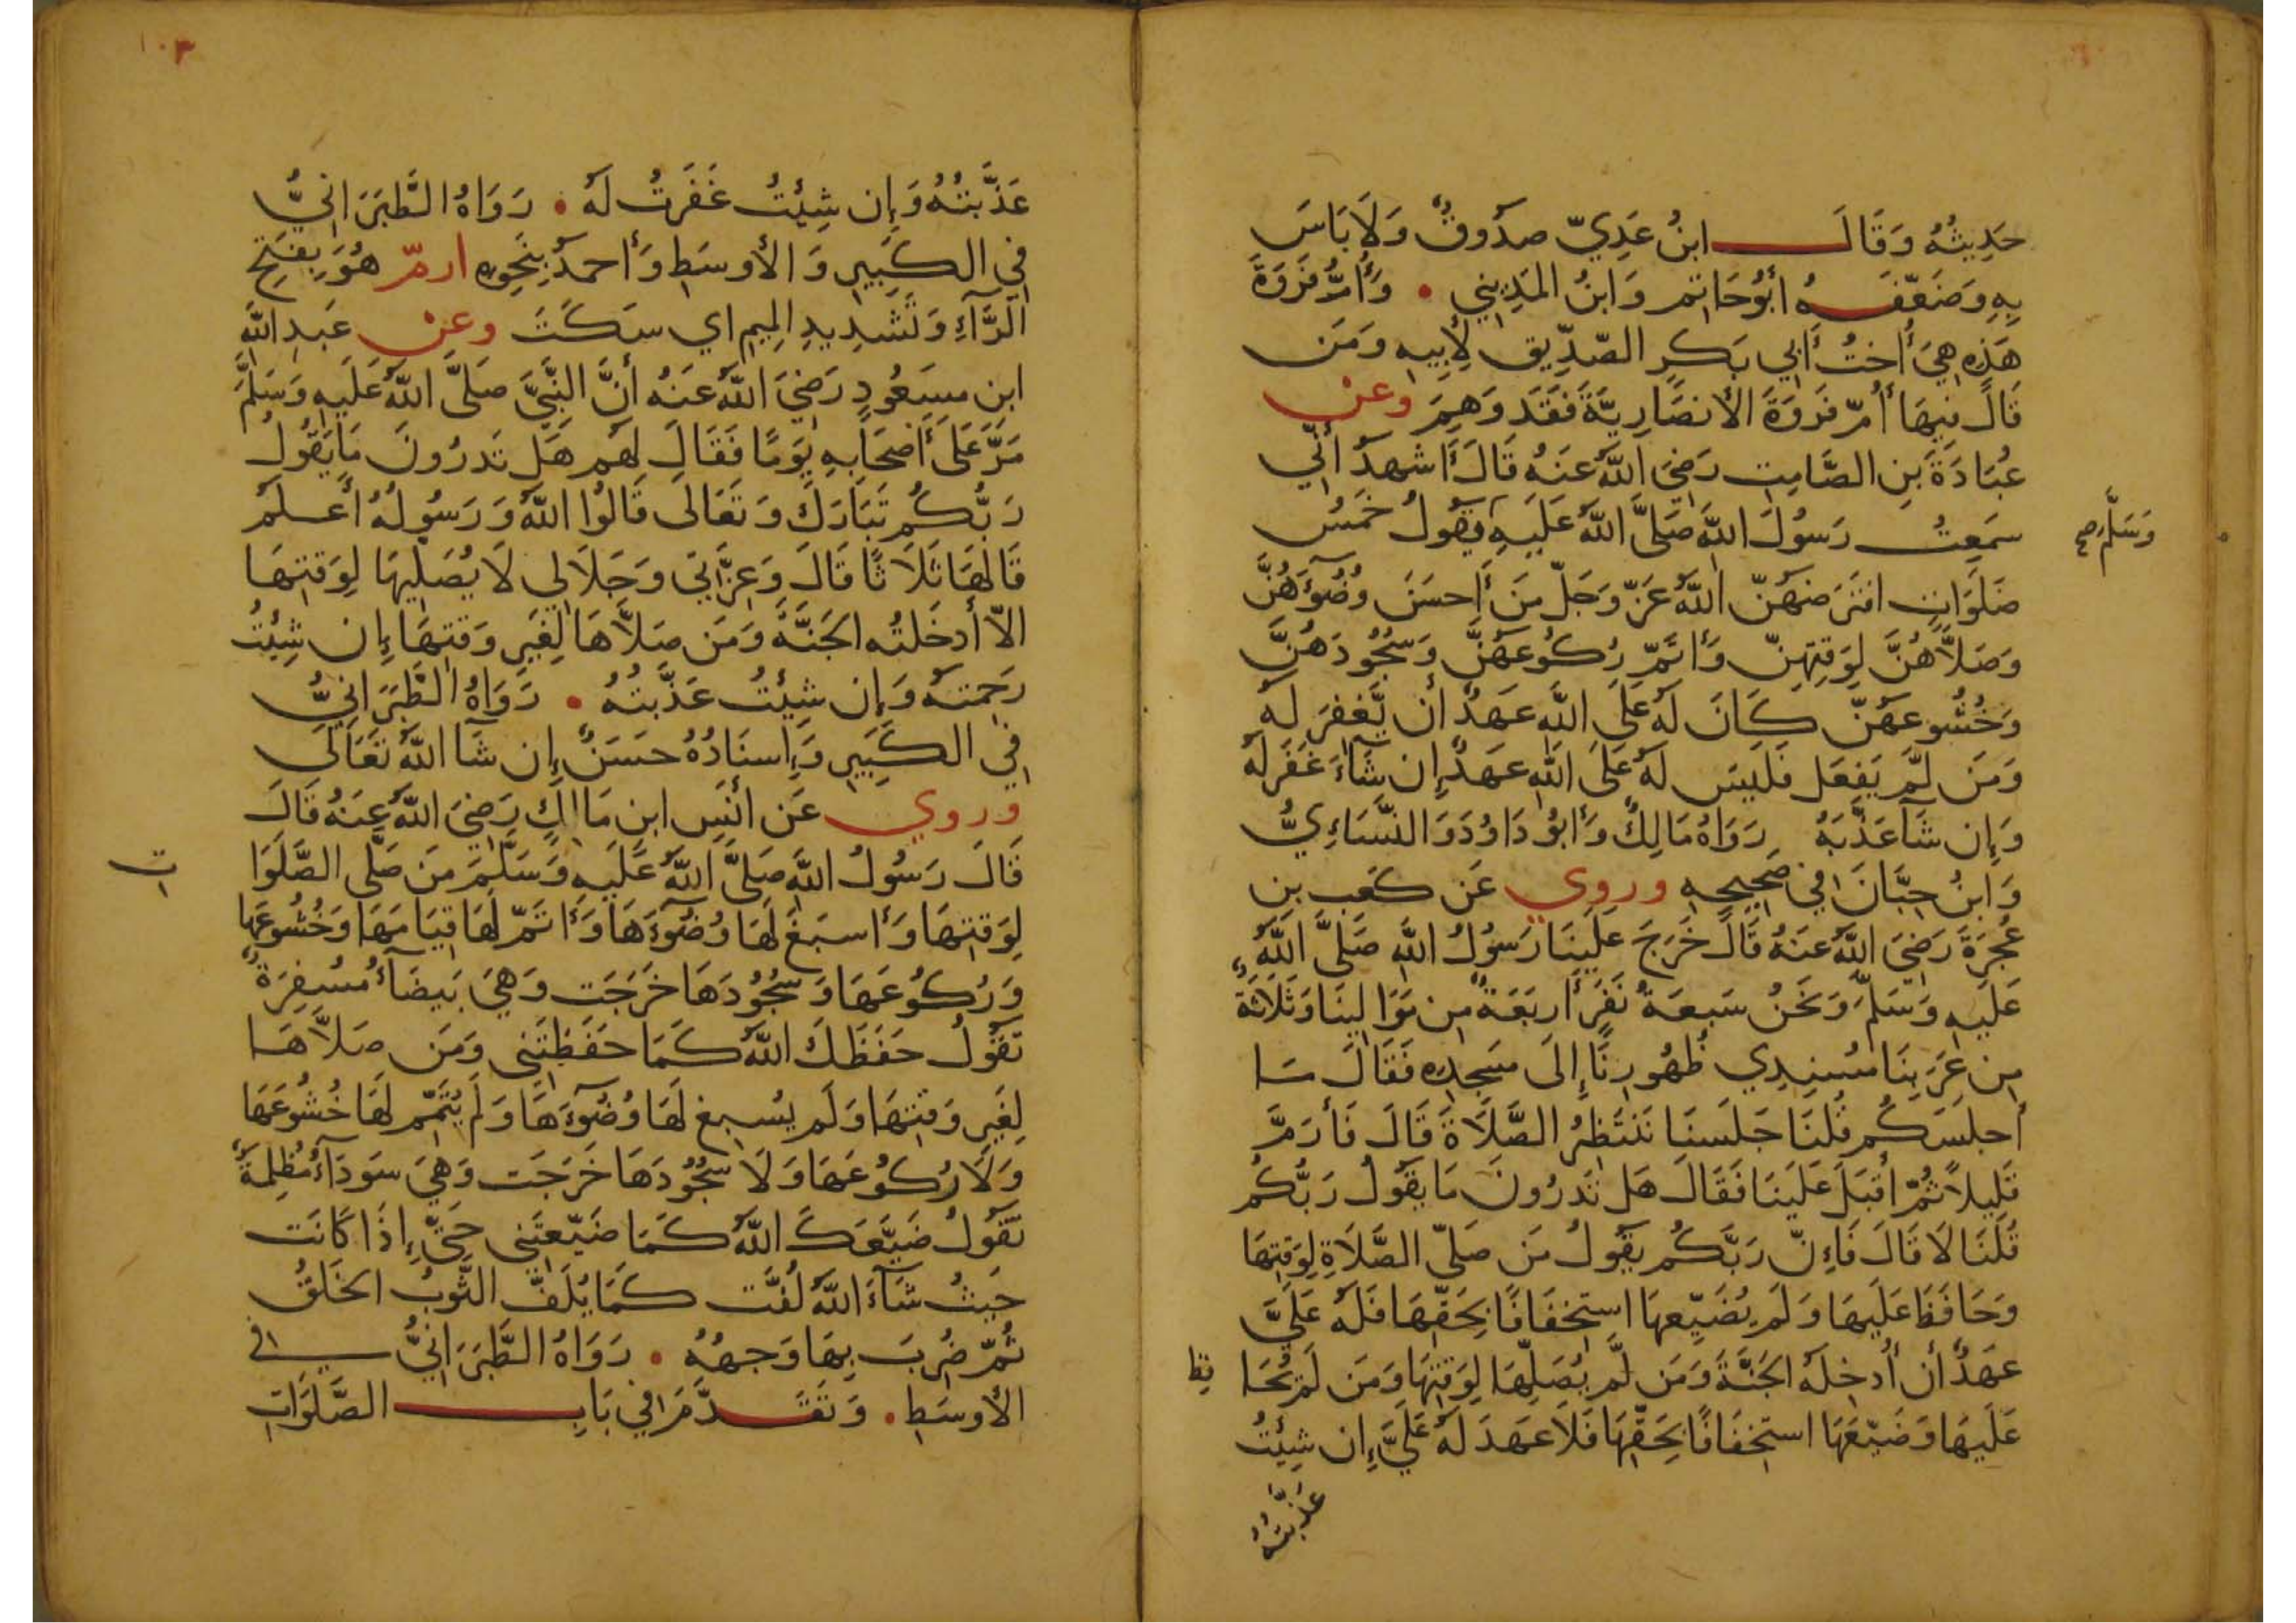 حَدِيثُهُ وَقَالَ ابنُ عَدِيّ صدُوقٌ وَلَا بَاسَ
بِهِ وَضَعّفَهُ أبُو حَاتِم وَابنُ المَدِينِي . وَأُمُّ فَروَةَ
هَذِهِ هِيَ أُختُ أبِي بَكرٍ الصّدِّيقِ لِأبِيهِ وَمَن
قَالَ فِيهَا أُمّ فَروَةَ الأنصَارِيَّةَ فَقَد وَهِمَ وعن
عُبَادَةَ بنِ الصَّامِتِ رَضِيَ اللَّهُ عَنهُ قَالَ أَشهَدُ أنّي
سَمِعتُ رَسُولَ اللَّهِ صَلَّى اللَّهُ عَلَيهِ يَقُولُ خَمسُ
وَسَلَّمَ صح
صَلَوَاتٍ افتَرَضَهُنّ اللَّهُ عَزّ وَجَلّ مَن أَحسَنَ وُضُوءَهُنَّ
وَصَلَّاهُنَّ لِوَقتِهِنّ وَأتَمّ رُكُوعَهُنَّ وَسُجُودَهُنَّ
وَخُشُوعَهُنّ كَانَ لَهُ عَلَى اللَّهِ عَهدٌ أن يَّغفِرَ لَهُ
وَمَن لَّم يَفعَل فَلَيسَ لَهُ عَلَى اللَّهِ عَهدٌ إن شَآءَ غَفَرَ لَهُ
وَإِن شَآ عَذَّبَهُ رَوَاهُ مَالِكٌ وَأبُو دَاوُدَ وَالنَّسَاءِيُّ
وَابنُ حِبَّانَ فِي صَحِيحِهِ وروي عَن كَعبِ بنِ
عُجرَةَ رَضِيَ اللَّهُ عَنهُ قَالَ خَرَجَ عَلَينَا رَسُولُ اللَّهِ صَلَّى اللَّهُ
عَلَيهِ وَسَلَّمَ وَنَحنُ سَبعَةُ نَفَرٍ أَربَعَةٌ مِن مَوَالِينَا وَثَلَاثَةٌ
مِن عَرَبِنَا مُسنِدِي ظُهُورِنَا إِلَى مَسجِدِهِ فَقَالَ مَا
أَجلَسَكُم قُلنَا جَلَسنَا نَنتَظِرُ الصَّلَاةَ قَالَ فَأَرَمَّ
قَلِيلاً ثُمّ أَقبَلَ عَلَينَا فَقَالَ هَل تَدرُونَ مَا يَقُولُ رَبُّكُم
قُلنَا لَا قَالَ فَإِنّ رَبَّكُم يَقُولُ مَن صَلّى الصَّلَاةِ لِوَقتِهَا
وَحَافَظَ عَلَيهَا وَلَم يُضَيِّعهَا استِخفَافًا بِحَقِّهَا فَلَهُ عَلَيَّ
عَهدٌ أن أُدخِلَهُ الجَنَّةَ وَمَن لَّم يُصَلِّهَا لِوَقتِهَا وَمَن لَم يُحَا
فِظ
عَلَيهَا وَضَيّعَهَا استِخفَافًا بِحَقِّهَا فَلَا عَهدَ لَهُ عَلَيَّ إِن شِئتُ
عَذَّبتُهُ
١٠٣
عَذَّبتُهُ وَإِن شِئتُ غَفَرتُ لَهُ . رَوَاهُ الطَّبَرَانِيُّ
فِي الكَبِيرِ وَالأَوسَطِ وَأَحمَدُ بِنَحوِهِ ارمّ هُوَ بِفَتحِ
الرَّآءِ وَتَشدِيدِ المِيمِ اي سَكَتَ وعن عَبدِ اللَّهِ
ابنِ مسعُودٍ رَضِيَ اللَّهُ عَنهُ أنَّ النَّبِيَّ صَلَّى اللَّهُ عَلَيهِ وَسَلَّمَ
مَرَّ عَلَى أَصحَابِهِ يَومًا فَقَالَ لَهُم هَل تَدرُونَ مَا يَقُولُ
رَبُّكُم تَبَارَكَ وَتَعَالَى قَالُوا اللَّهُ وَرَسُولُهُ أَعلَم
قَالَهَا ثَلَاثًا قَالَ وَعِزَّتِي وَجَلَالِي لَا يُصَلِّيهَا لِوَقتِهَا
الّا أَدخَلتُه الجَنَّةَ وَمَن صَلَّاهَا لِغَيرِ وَقتِهَا إِن شِئتُ
رَحِمتُهُ وَإِن شِئتُ عَذَّبتُهُ . رَوَاهُ الطَّبَرَانِيُّ
فِي الكَبِيرِ وَإِسنَادُهُ حَسَنٌ إِن شَآ اللَّهُ تَعَالَى
وروي عَن أَنَسِ ابنِ مَالِكٍ رَضِيَ اللَّهُ عَنهُ قَالَ
قَالَ رَسُولُ اللَّهِ صَلَّى اللَّهُ عَلَيهِ وَسَلَّمَ مَن صَلَّى الصَّلَوَا
ت
لِوَقتِهَا وَأَسبَغَ لَهَا وُضُوءَهَا وَأَتَمّ لَهَا قِيَامَهَا وَخُشُوعَهَا
وَرُكُوعَهَا وَسُجُودَهَا خَرَجَت وَهِيَ بَيضَآءُ مُسفِرَةٌ
تَقُولُ حَفَظَكَ اللَّهُ كَمَا حَفَظتَنِي وَمَن صَلَّاهَا
لِغَيرِ وَقتِهَا وَلَم يُسبِغ لَهَا وُضُوءَهَا وَلَم يُتَمِّم لَهَا خُشُوعَهَا
وَلَا رُكُوعَهَا وَلَا سُجُودَهَا خَرَجَت وَهِيَ سَودَآءُ مُظلِمَةٌ
تَقُولُ ضَيَّعَكَ اللَّهُ كَمَا ضَيّعتَنِي حَتَّى إِذَا كَانَت
حَيثُ شَآءَ اللَّهُ لُفَّت كَمَا يُلَفّ الثَّوبُ الخَلَقُ
ثُمّ ضُرِبَ بِهَا وَجهُهُ . رَوَاهُ الطَّبَرَانِيُّ في
الأَوسَطِ . وَتَقَدَّمَ فِي بَابِ الصَّلَوَاتِ